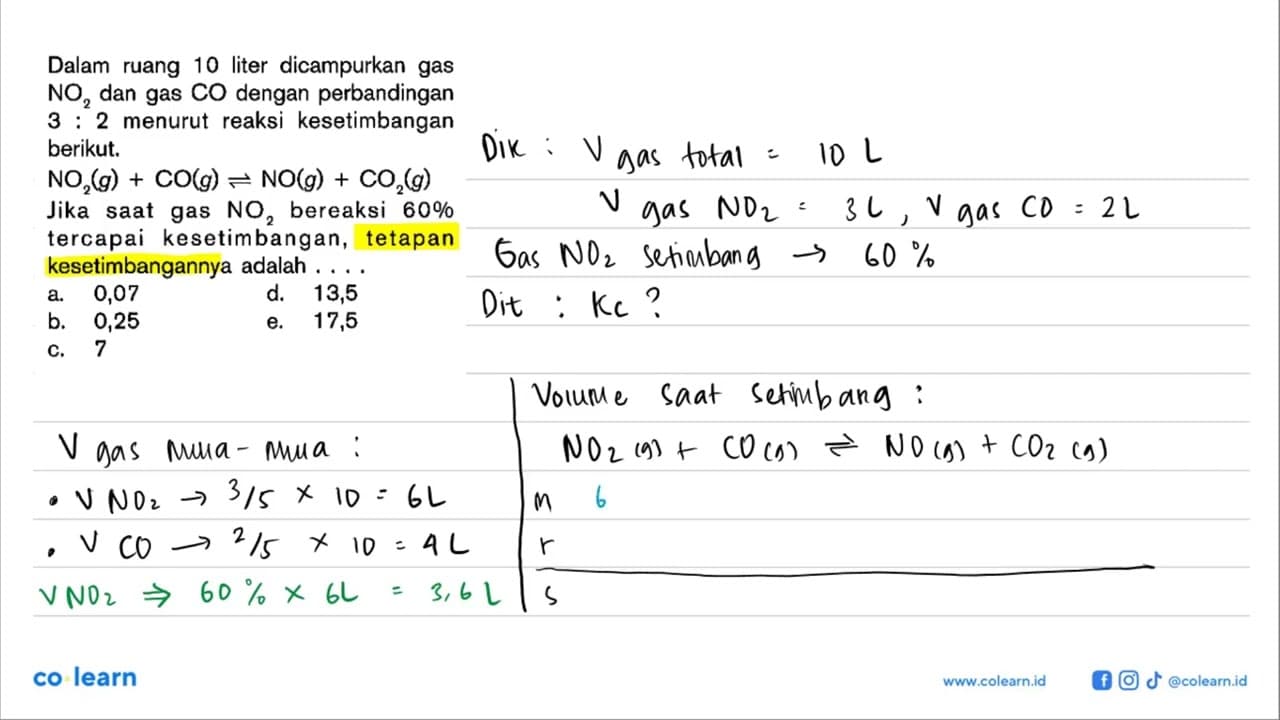 Dalam ruang 10 liter dicampurkan gas
NO₂ dan gas CO dengan perbandingan
3 : 2 menurut reaksi kesetimbangan
berikut.
NO₂(g) + CO(g) ⇌ NO(g) + CO₂(g)
Jika saat gas NO₂ bereaksi 60%
tercapai kesetimbangan, tetapan
kesetimbangannya adalah . . . .
a. 0,07 d. 13,5
b. 0,25 e. 17,5
c. 7
Dik : V gas total = 10 L
V gas NO₂ = 3L, V gas CO = 2L
Gas NO₂ setimbang → 60 %
Dit : Kc ?
V gas mula-mula :
• V NO₂ → 3/5 × 10 = 6L
• V CO → 2/5 × 10 = 4L
V NO₂ ⇒ 60 % × 6L = 3,6 L
Volume saat setimbang :
NO₂ (g) + CO (g) ⇌ NO (g) + CO₂ (g)
m 6
r
s
co learn
www.colearn.id
@colearn.id